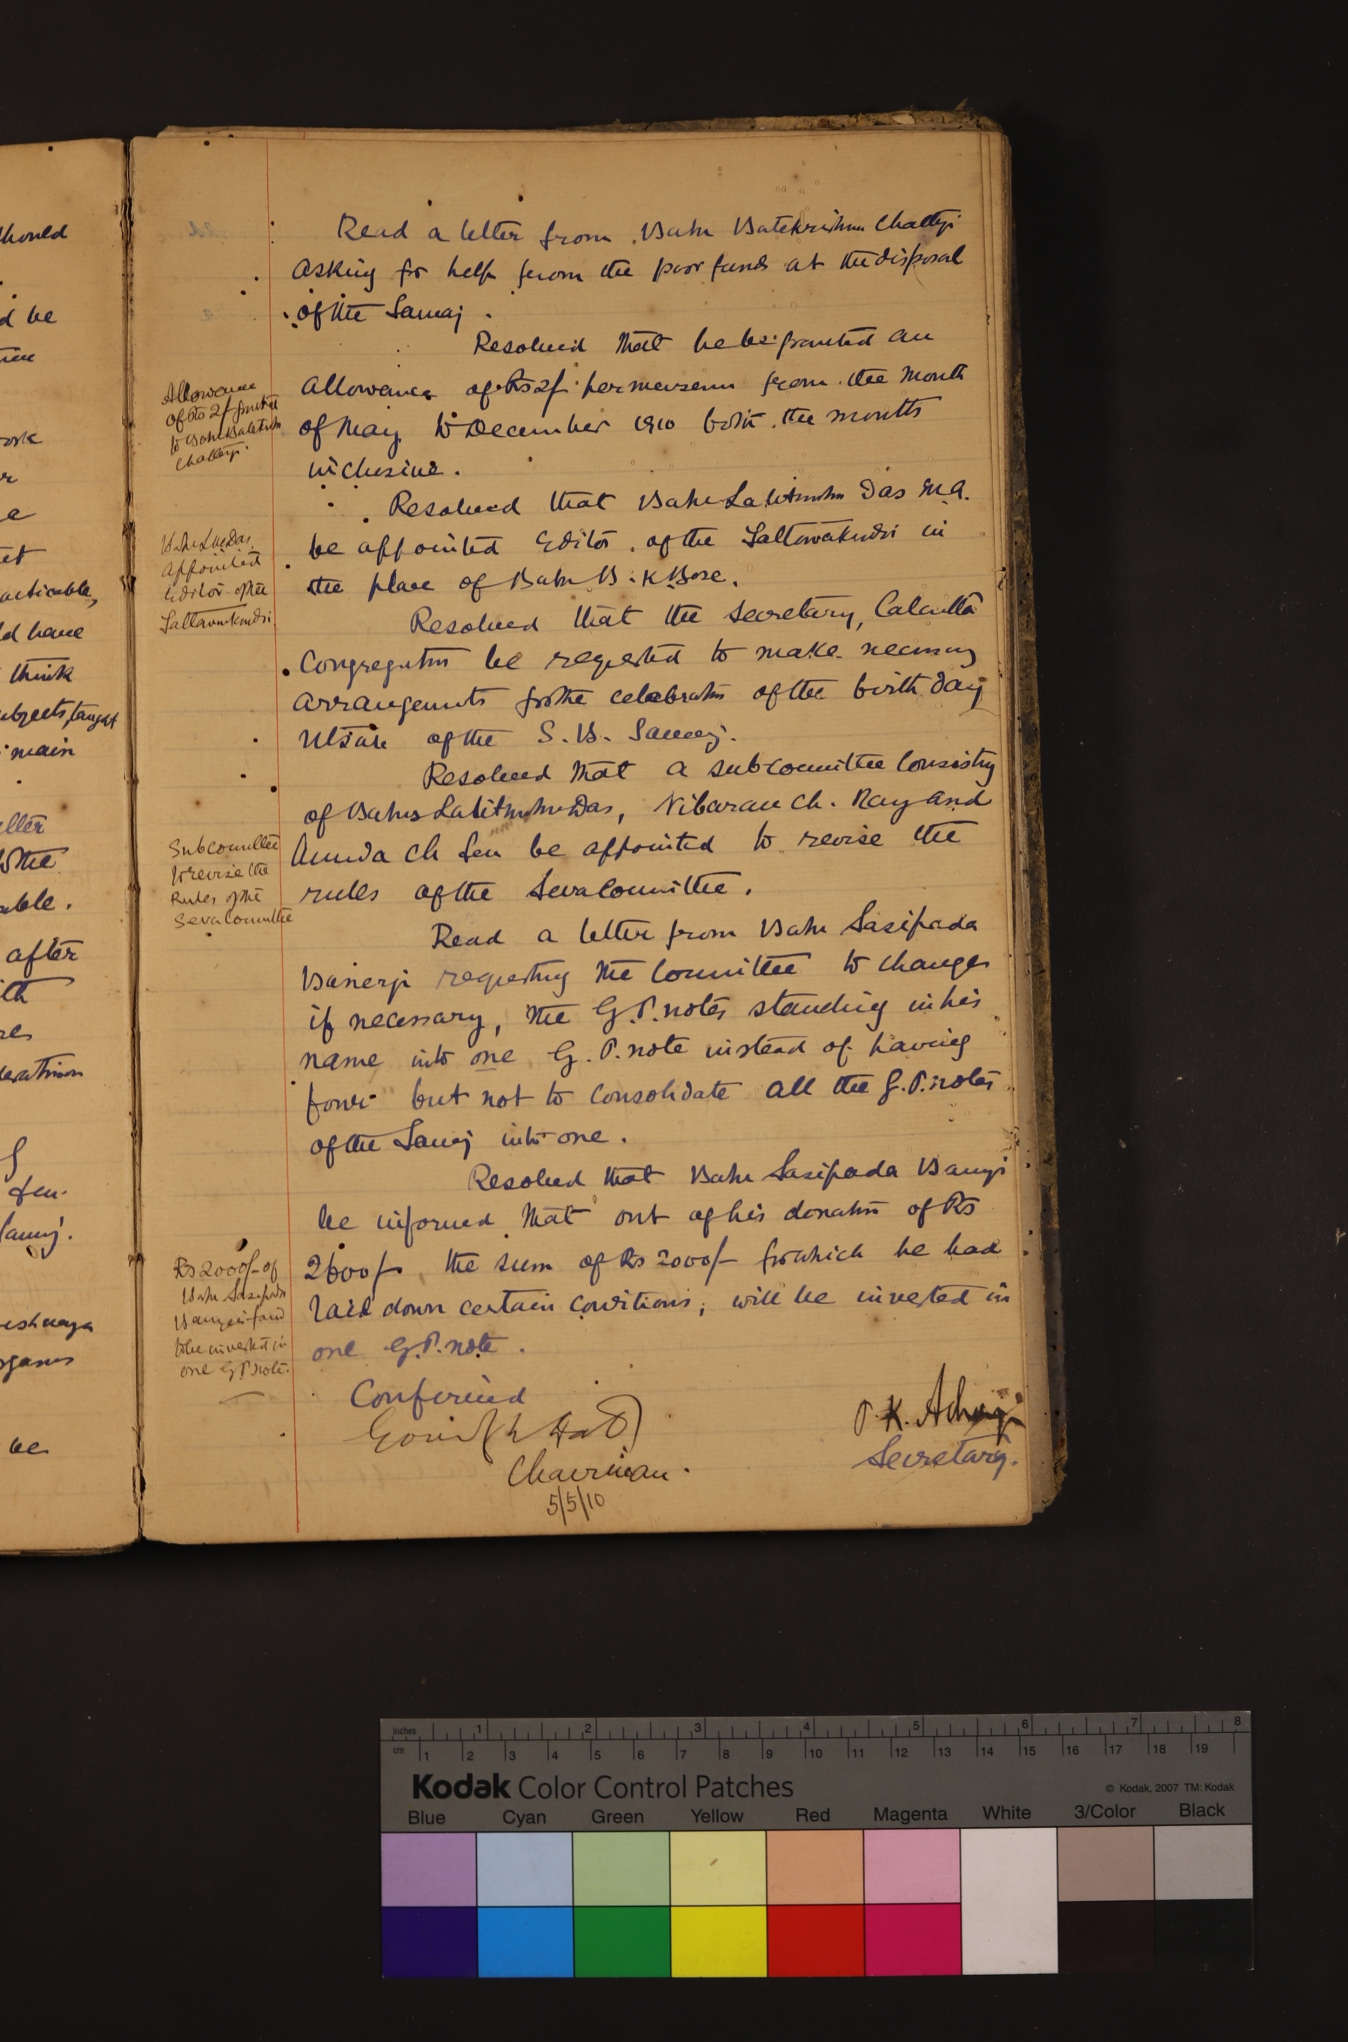 Read a letter from Babu Batakrishna Chatterji
asking for help from the poor funds at the disposal
of the Samaj.
Resolved that he be granted an
allowance of Rs 2/- per mensem from the month
of May to December 1910 both the months
inclusive.
Allowance
of Rs 2/- granted
to Babu Batakrishna
Chatterji
Resolved that Babu Lalitmohan Das M.A.
be appointed Editor of the Tattwakaumudi in
the place of Babu B. K Bose.
Babu L. M. Das
appointed
Editor of the
Tattwakaumudi
Resolved that the Secretary, Calcutta
Congregation be requested to make necessary
arrangements for the celebration of the birth day
Utsab of the S. B. Samaj.
Resolved that a subcommittee consisting
of Babus Lalitmohan Das, Nibaran Ch. Ray and
Annada Ch Sen be appointed to revise the
rules of the Seva Committee.
Subcommittee
to revise the
Rules of the
Seva Committee
Read a letter from Babu Sasipada
Banerji requesting the Committee to change
if necessary, the G. P. notes standing in his
name into one G. P. note instead of having
four but not to consolidate all the G. P. notes
of the Samaj into one.
Resolved that Babu Sasipada Banerji
be informed that out of his donation of Rs
2600/- the sum of Rs 2000/- for which he had
laid down certain conditions, will be invested in
one G. P. note.
Rs 2000/- of
Babu Sasipada
Banerji fund
to be invested in
one G P note.
Confirmed
Chairman.
5/5/10
P. K. Acharji
Secretary.
should
d be
work
et
acticable,
ld have
think
subjects, taught
main
to the
able.
after
Sen.
Samaj.
organs
be
inches 1 2 3 4 5 6 7 8
cm 1 2 3 4 5 6 7 8 9 10 11 12 13 14 15 16 17 18 19
Kodak Color Control Patches
© Kodak, 2007 TM: Kodak
Blue Cyan Green Yellow Red Magenta White 3/Color Black